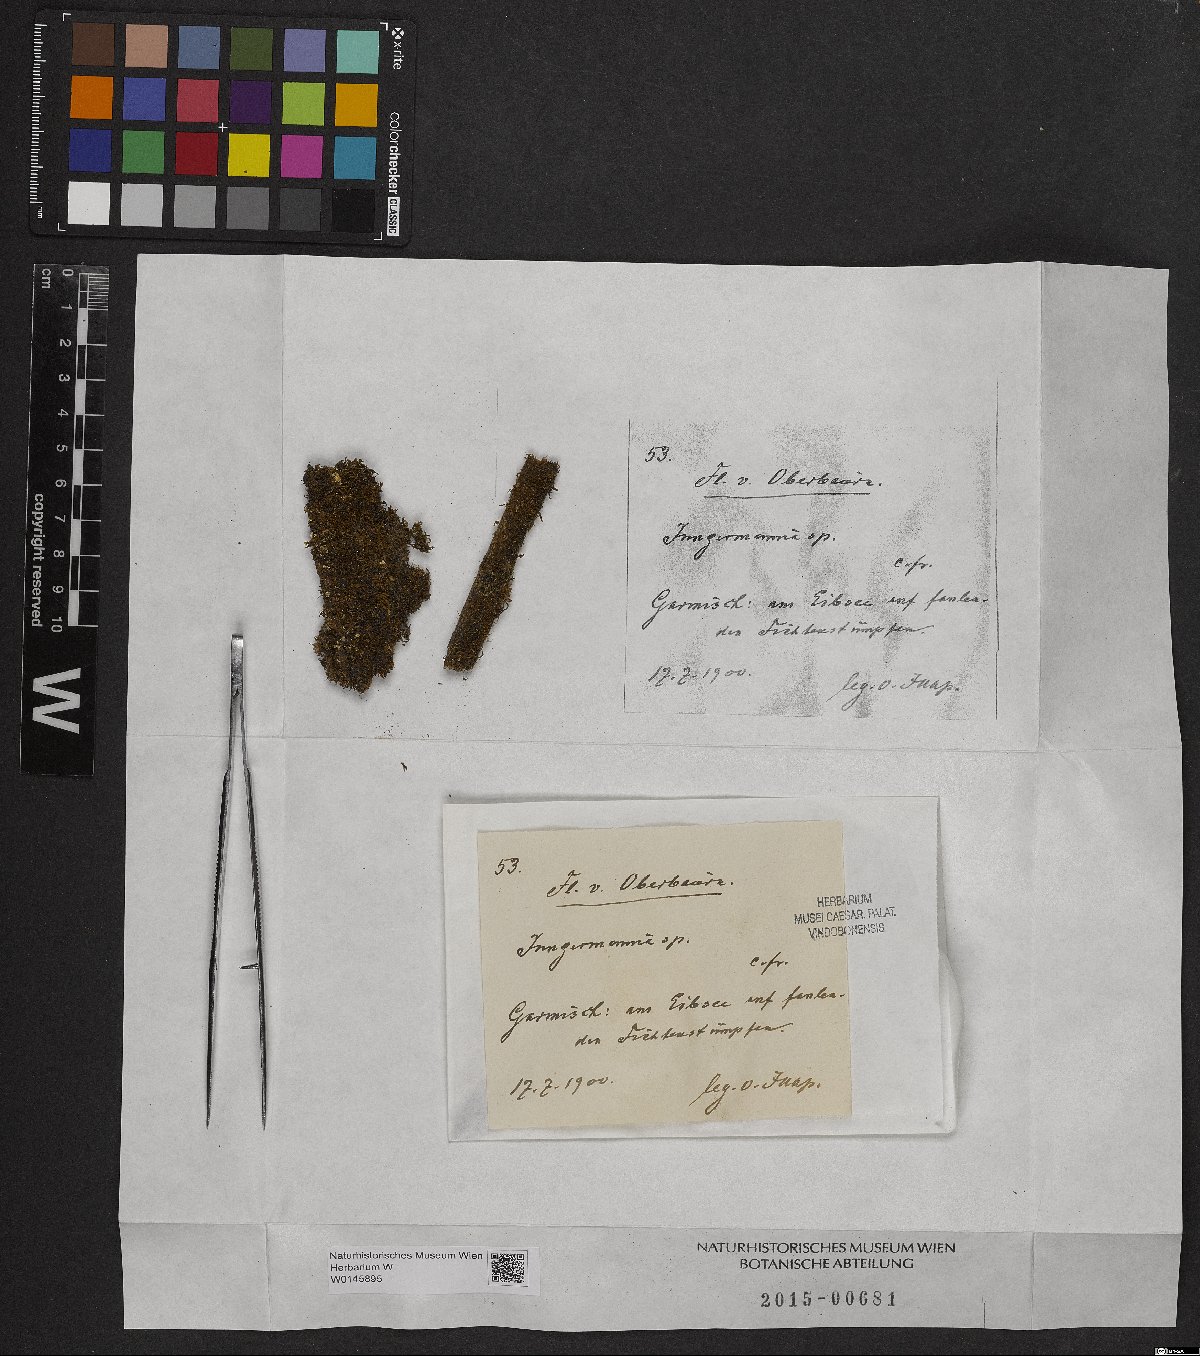 x-rite
colorchecker CLASSIC
mm
0 1 2 3 4 5 6 7 8 9 10
cm
copyright reserved
W
53.
Fl. v. Oberbaiern.
Jungermannia sp.
c. fr.
Garmisch: am Eibsee auf faulen-
den Fichtenstümpfen.
17.7.1900.
leg. O. Jaap.
53.
Fl. v. Oberbaiern.
Jungermannia sp.
c. fr.
Garmisch: am Eibsee auf faulen-
den Fichtenstümpfen.
17.7.1900.
leg. O. Jaap.
HERBARIUM
MUSEI CAESAR. PALAT.
VINDOBONENSIS
Naturhistorisches Museum Wien
Herbarium W
W0145895
NATURHISTORISCHES MUSEUM WIEN
BOTANISCHE ABTEILUNG
2015-00681